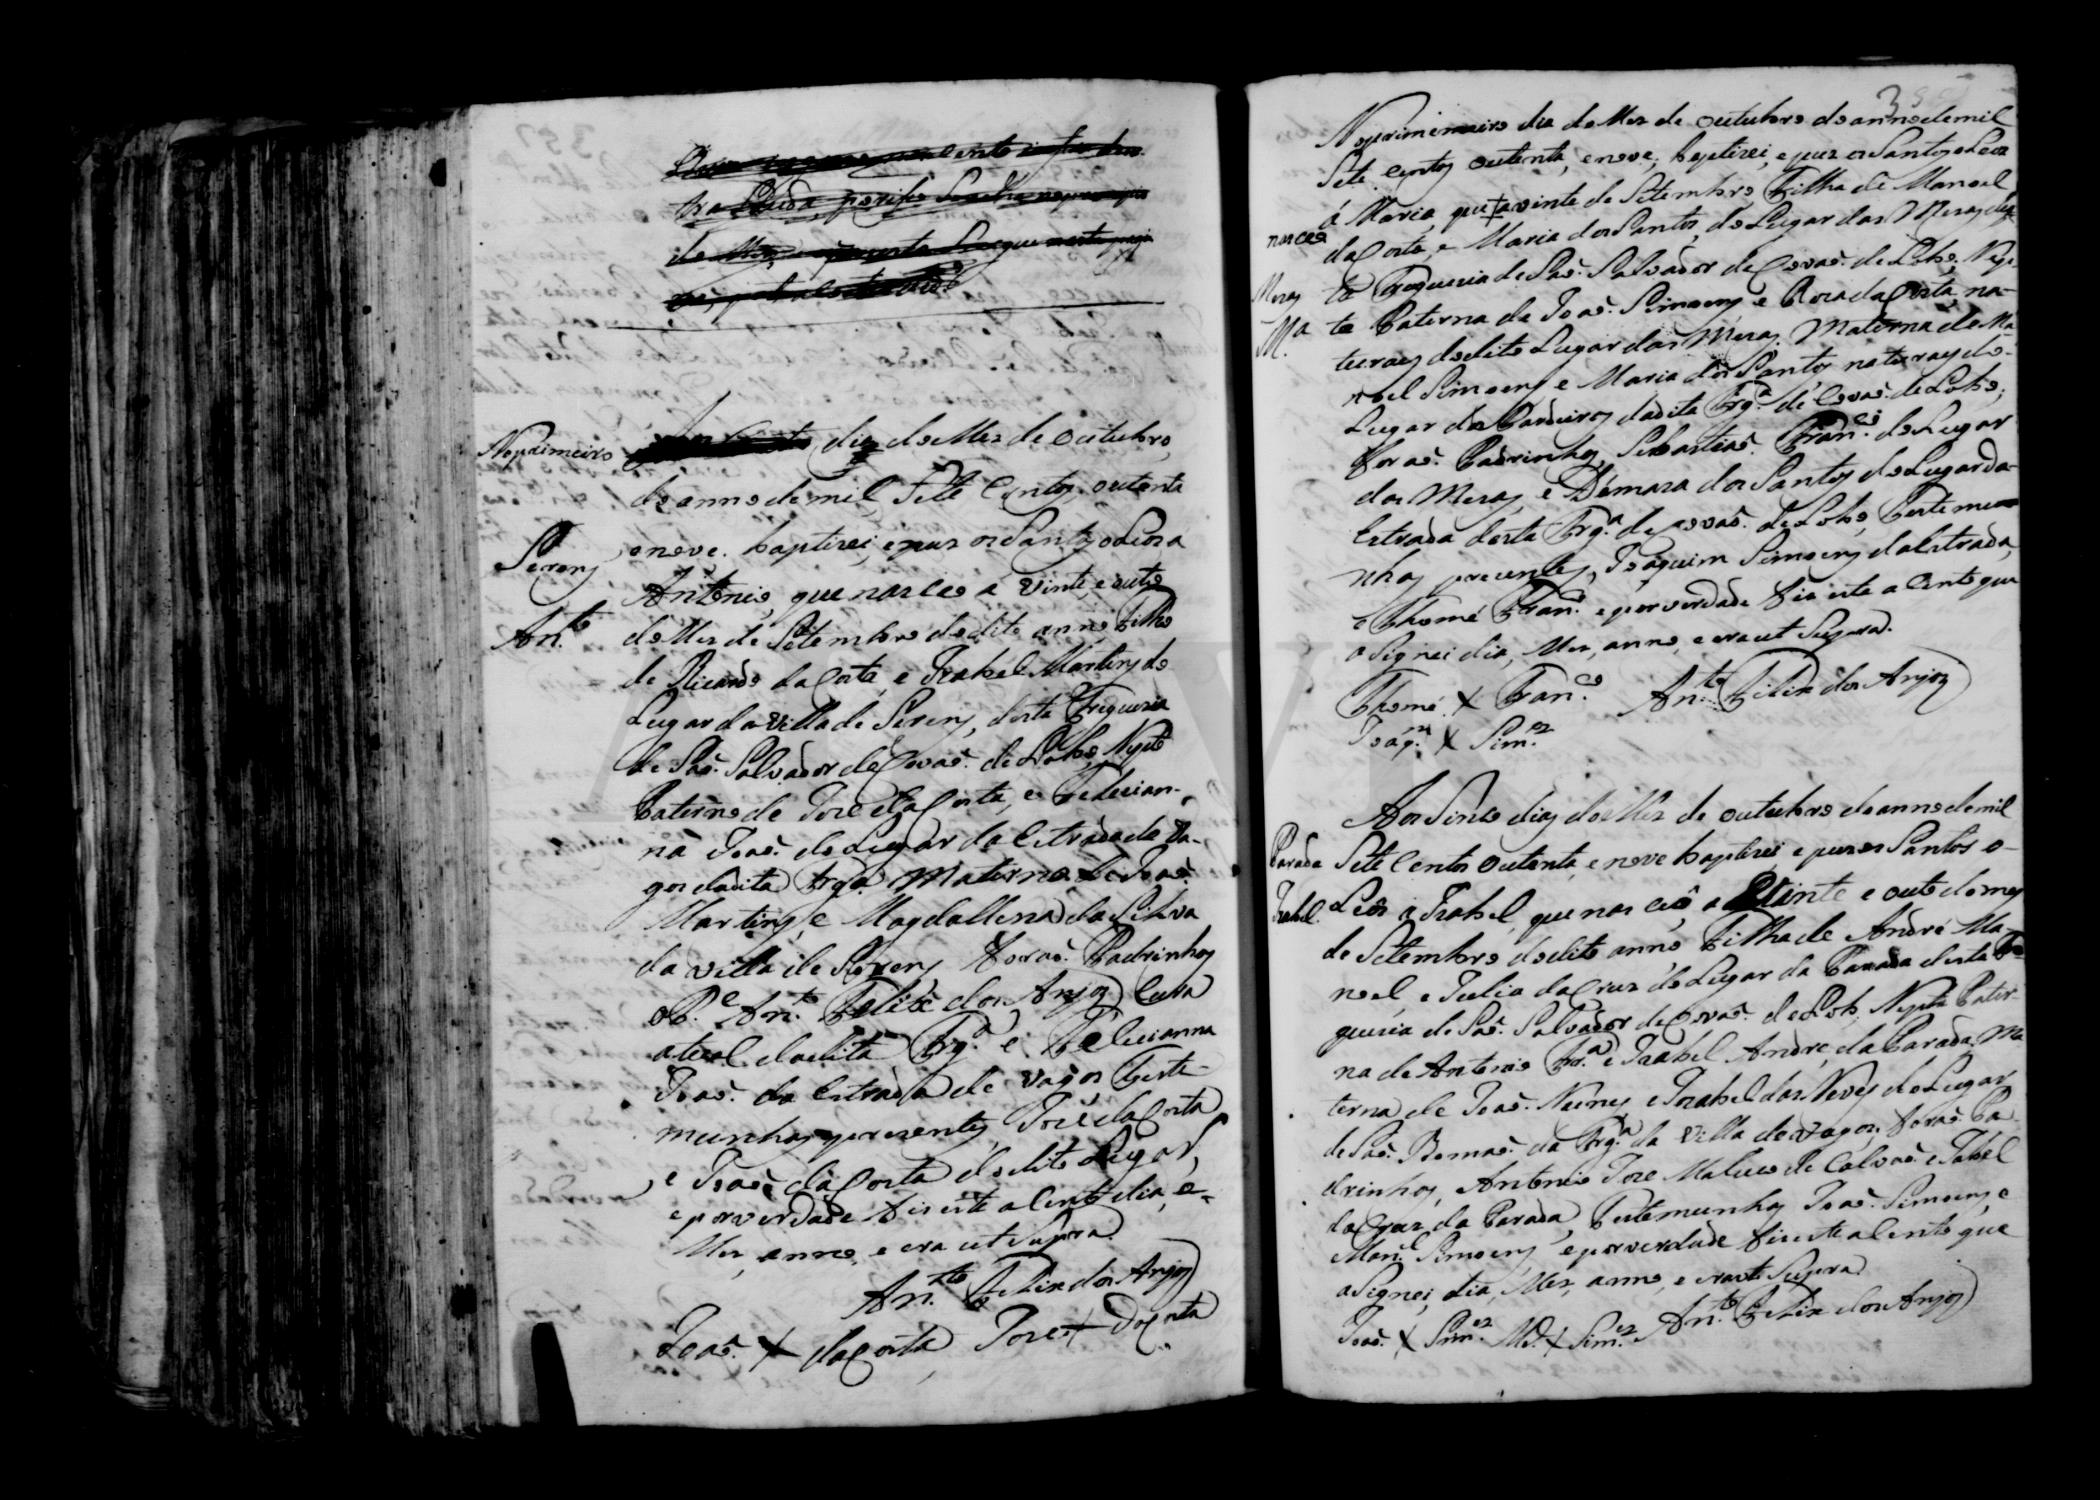 No primeiro dia do Mes de Outubro
do anno de mil, Sete Centos outenta
Serem
e nove, baptizei, e puz os Santos oLeos a
An.to
Antonio, que nasceo a vinte, e outo
do Mes de Setembro do dito anno, Filho
de Ricardo da Costa, e Izabel Martins do
Lugar da villa de Serem, desta Freguezia
de Saõ Salvador de Covaõ de Lobo, Neto
Paterno de Joze da Costa, e Felecian-
na Joaõ do Lugar da Estrada de Va-
gos da dita Frg.a Materno de Joaõ
Martins, e Magdallena da Silva
da villa de Serem foraõ Padrinhos
o P.e An.to Felix dos Anjos Cura
atual da dita Frg.a e Felicianna
Joaõ da Estrada de Vagos Teste-
munhas prezentes, Joze da Costa,
e Joaõ da Costa do dito Lugar,
e por verdade fis este acento dia, e
Mes, anno, e era ut Supra.
An.to Felix dos Anjos
Joaõ X da Costa Joze X da Costa
No primeimeiro dia do Mes de outubro do anno de mil
Sete Centos outenta, e nove, baptizei, e puz os Santos oLeos
á Maria, que a vinte de Setembro, Filha de Manoel
nasceo
da Costa, e Maria dos Santos, do Lugar das Mezas des-
ta Freguezia de Saõ Salvador de Covaõ de Lobo, Ne-
Mezas
M.a
ta Paterna de Joaõ Simoens e Roza da Costa, na-
turaes do dito Lugar das Mezas, Materna de Ma-
noel Simoens e Maria dos Santos naturaes do
Lugar da dita Frg.a de Covaõ de Lobo,
foraõ Padrinhos, Sebastiaõ Fran.co do Lugar
das Mezas, e Damaza dos Santos do Lugar da
Estrada desta Frg.a de Covaõ de Lobo, Testemu-
nhas prezentes, Joaquim Simoens da Estrada,
e Thomé Fran.co e por verdade fis este acento que
aSignei dia, Mes, anno, e era ut Supra.
Thomé X Fran.co An.to Felix dos Anjos
Joaq.m X Sim.es
Aos Sinco dias do Mes de outubro do anno de mil
Parada
Sete Centos outenta, e nove baptizei e puz os Santos o-
Izabel
Leos a Izabel, que nasceô a Vinte e outo do mes
de Setembro do dito anno, Filha de André Ma-
noel, e Julia da Cruz do Lugar da Parada desta Fre-
guezia de Saõ Salvador de Covaõ de Lobo, Neta Pater-
na de Antonio e Izabel André, da Parada, Ma-
terna de Joaõ Nunes e Izabel das Neves do Lugar
de Saõ Romaõ da Frg.a da Villa de Vagos, foraõ Pa-
drinhos, Antonio Joze de Calvaõ e Izabel
da Cruz da Parada, Testemunhas Joaõ Simoens, e
Man.el Simoens, e por verdade fis este acento que
aSignei, dia, Mes, anno, e era ut Supra.
Joaõ X Sim.es M.el X Sim.es An.to Felix dos Anjos